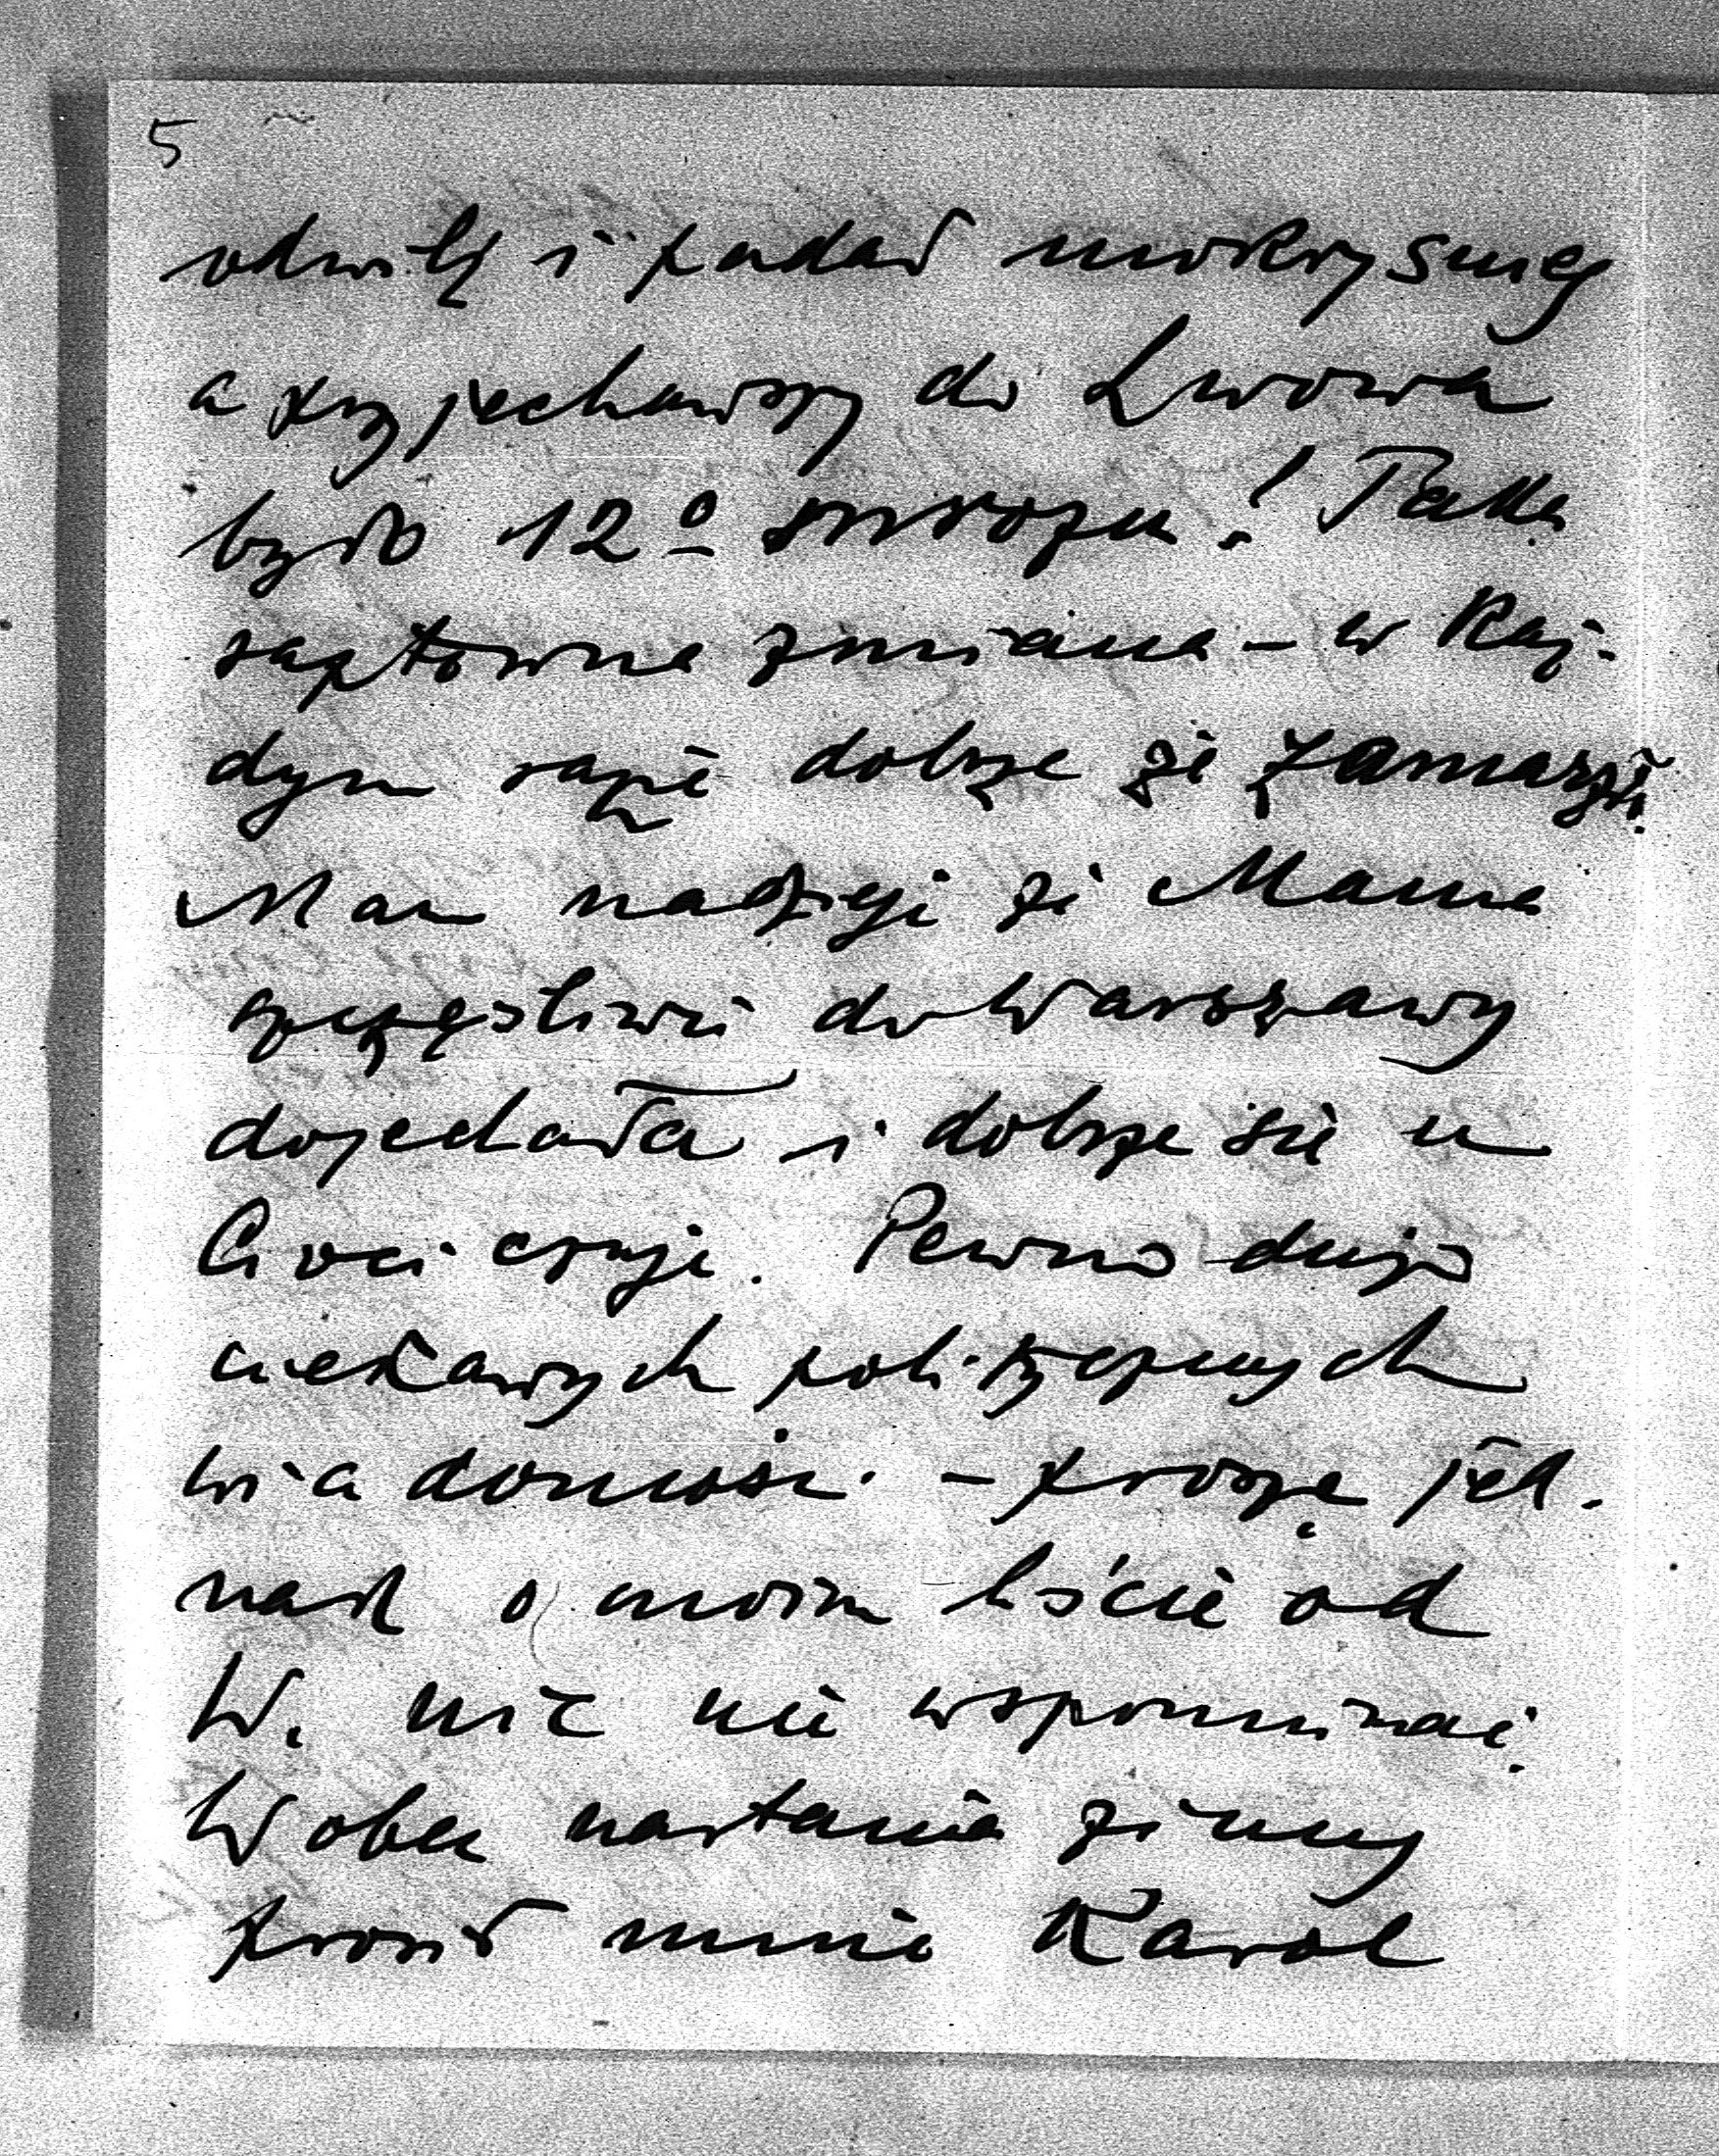 5
odwilż i padał mokry śnieg
a przyjechawszy do Lwowa
było 12º mrozu! Taka
raptowna zmiana – w każ-
dym razie dobrze że zamarzło.
Mam nadzieję że Mama
szczęśliwie do Warszawy
dojechała i dobrze się u
Cioci czuje. Pewno dużo
ciekawych politycznych
wiadomości – proszę jed-
nak o moim liście od
W. nic nie wspominać.
Wobec nastania zimy
prosił mnie Karol